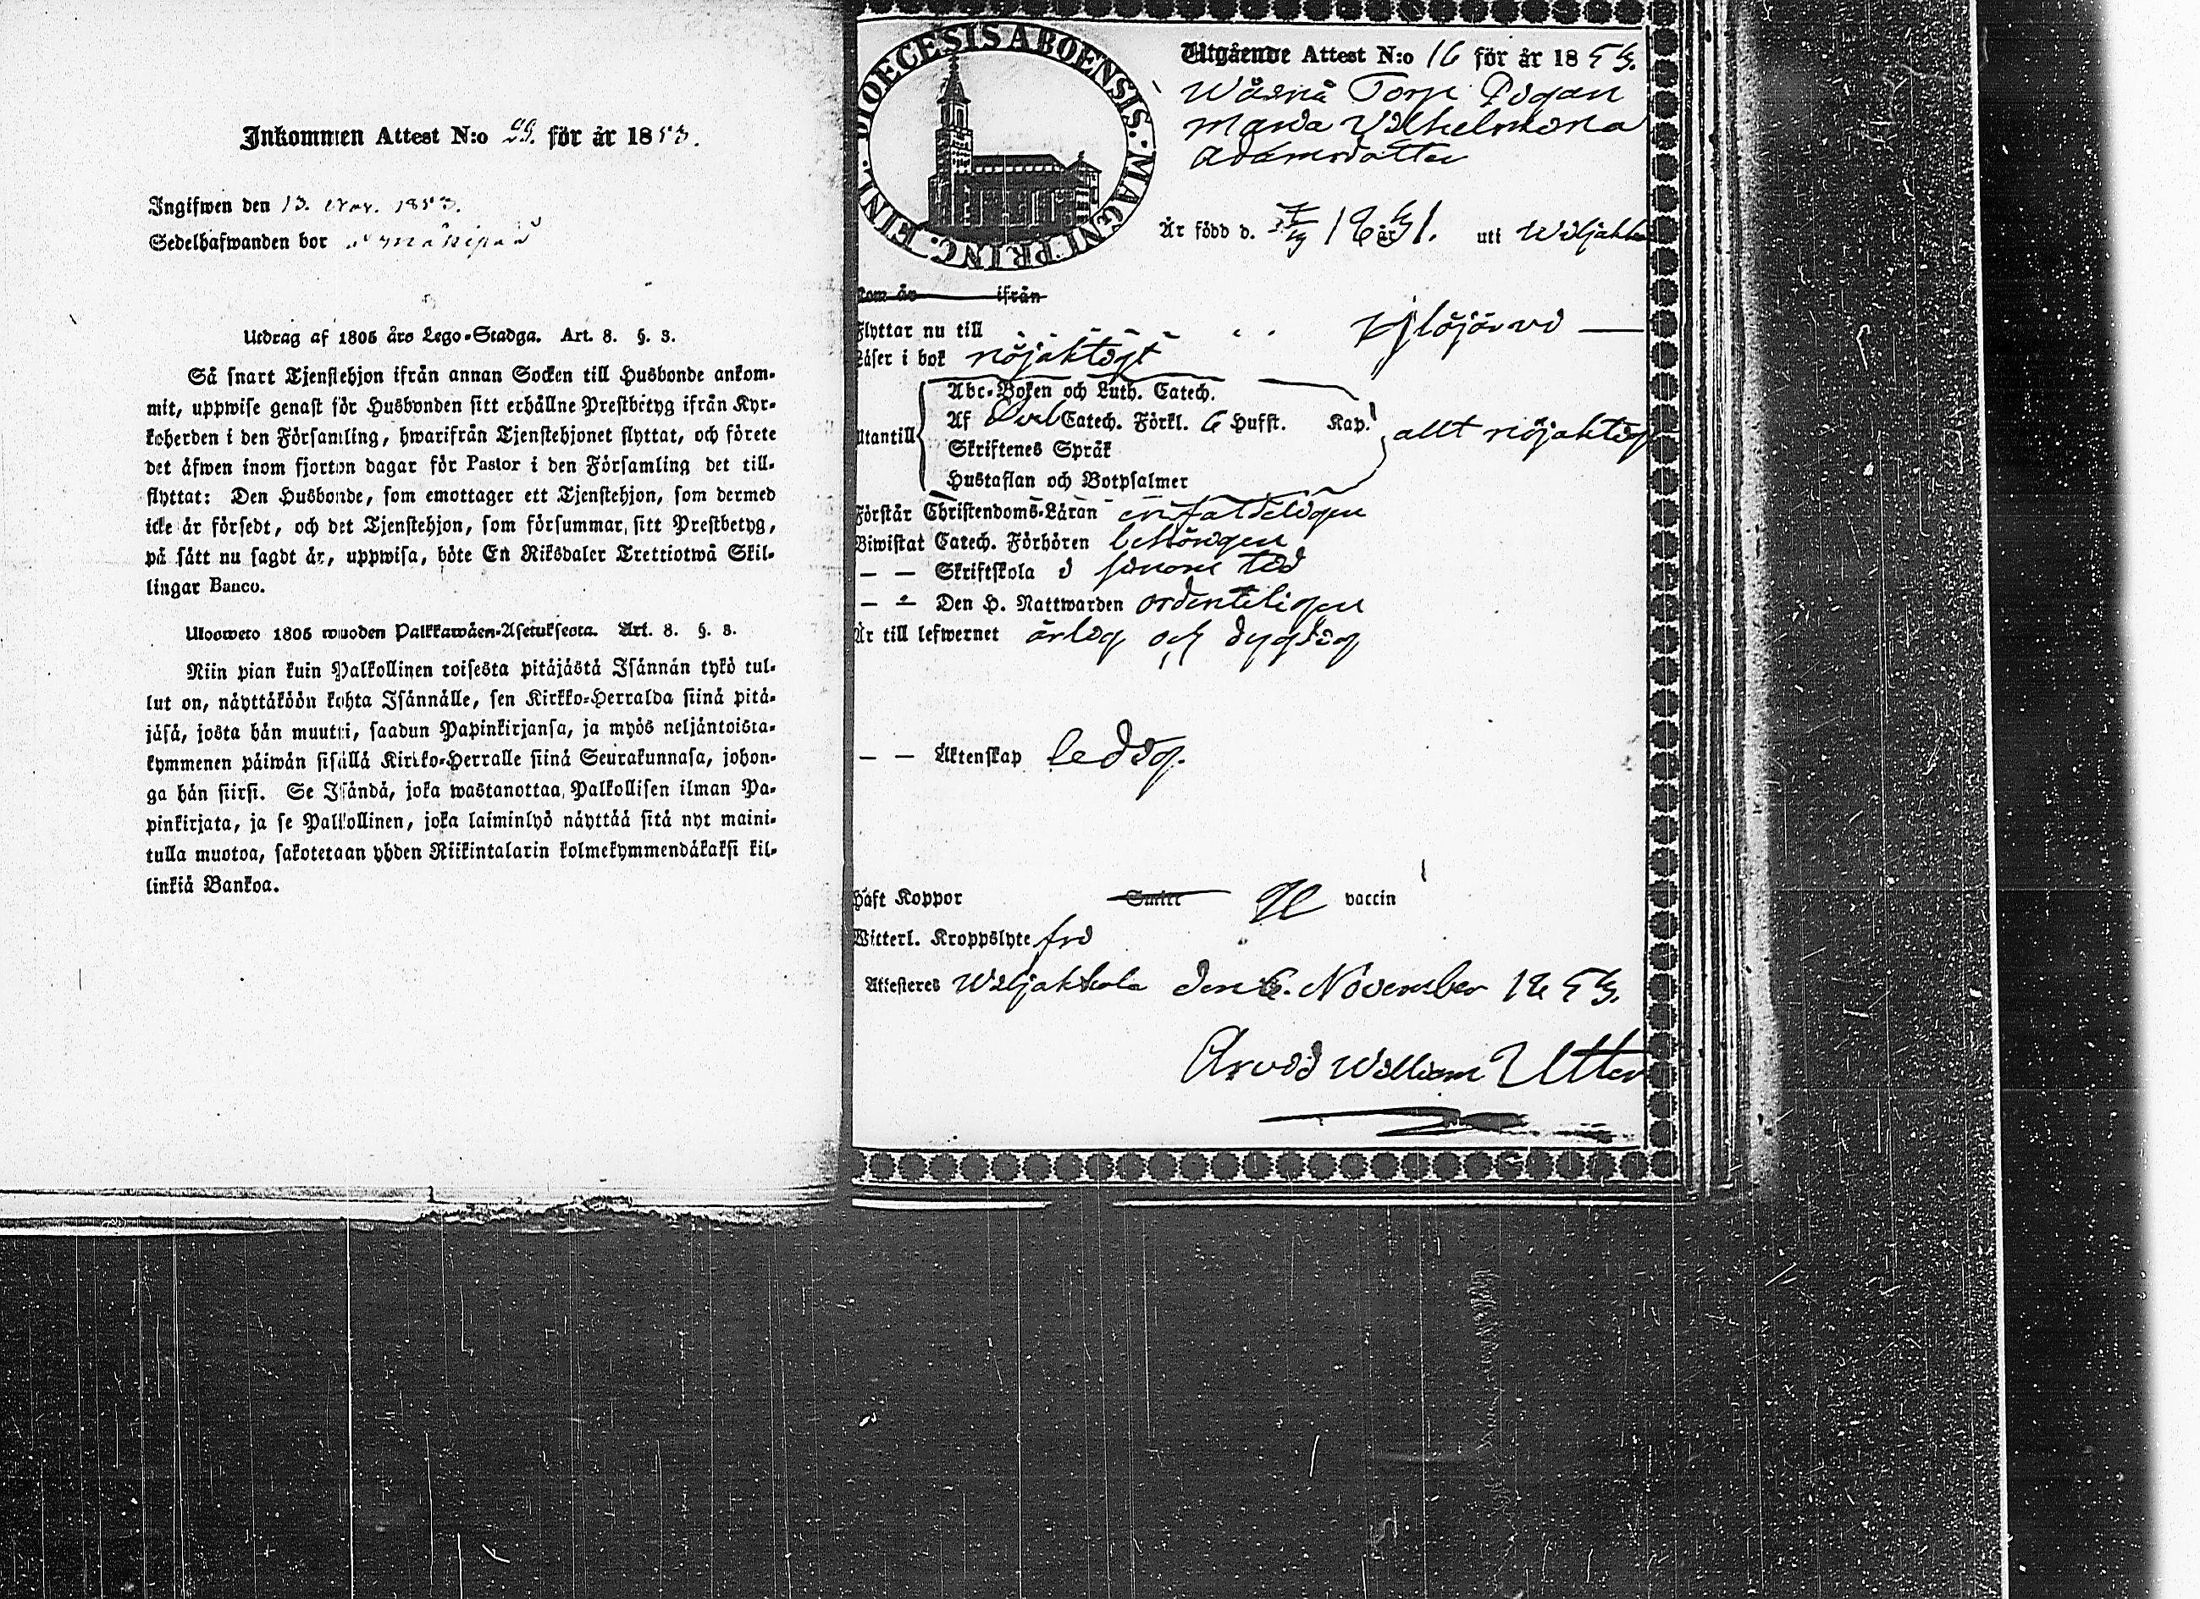 Inkommen Attest N:o 29. för år 1853.
Ingifwen den 13. Nov. 1853.
Sedelhafwanden bor
Utdrag af 1805 års Lego-Stadga. Art. 8. §. 3.
Så snart Tjenstehjon ifrån annan Socken till Husbonde ankom-
mit, uppwise genast för Husbonden sitt erhållne Prestbetyg ifrån Kyr-
koherden i den Församling, hwarifrån Tjenstehjonet flyttat, och förete
det åfwen inom fjorton dagar för Pastor i den Församling det till-
flyttat: Den Husbonde, som emottager ett Tjenstehjon, som dermed
icke är försedt, och det Tjenstehjon, som försummar, sitt Prestbetyg,
på sätt nu sagdt är, uppwisa, böte En Riksdaler Trettiotwå Skil-
lingar Banco.
Uloosweto 1805 wuoden Palkkawäen-Asetuksesta. Art. 8. §. 3.
Niin pian kuin Palkollinen toisesta pitäjästä Isännän tykö tul-
lut on, näyttäköön kohta Isännälle, sen Kirkko-Herralda siinä pitä-
jäsä, josta hän muutti, saadun Papinkirjansa, ja myös neljäntoista-
kymmenen päiwän sisällä Kirkko-Herralle siinä Seurakunnasa, johon-
ga hän siirsi. Se Isändä, joka wastanottaa Palkollisen ilman Pa-
pinkirjata, ja se Palkollinen, joka laiminlyö näyttää sitä nyt maini-
tulla muotoa, sakotetaan yhden Riikintalarin kolmekymmendäkaksi kil-
linkiä Bankoa.
DIOECESIS ABOENSIS. MAGNI PRINC. FINL.
Utgående Attest N:o 16 för år 1853.
Torp Pigan
Maria Vilhelmina
Adamsdotter
Är född d. 1831. uti Wiljakka
Kom år ifrån
Flyttar nu till Ylöjärvi
Läser i bok nöjaktigt
Abc-Boken och Luth. Catech.
Utantill Af Catech. Förkl. 6 Hufst. Kap. allt nöjaktig
Skriftenes Språk
Hustaflan och Botpsalmer
Förstår Christendoms-Läran enfaldeligen
Biwistat Catech. Förhören behörigen
— — Skriftskola i sinom tid
— — Den H. Nattwarden ordenteligen
Är till lefwernet ärlig och dygdig
— — Äktenskap ledig.
Haft Koppor Smitt vaccin
Witterl. Kroppslyte fri
Attesteres Wiljakkala den 6. November 1853.
Arvid William Utter